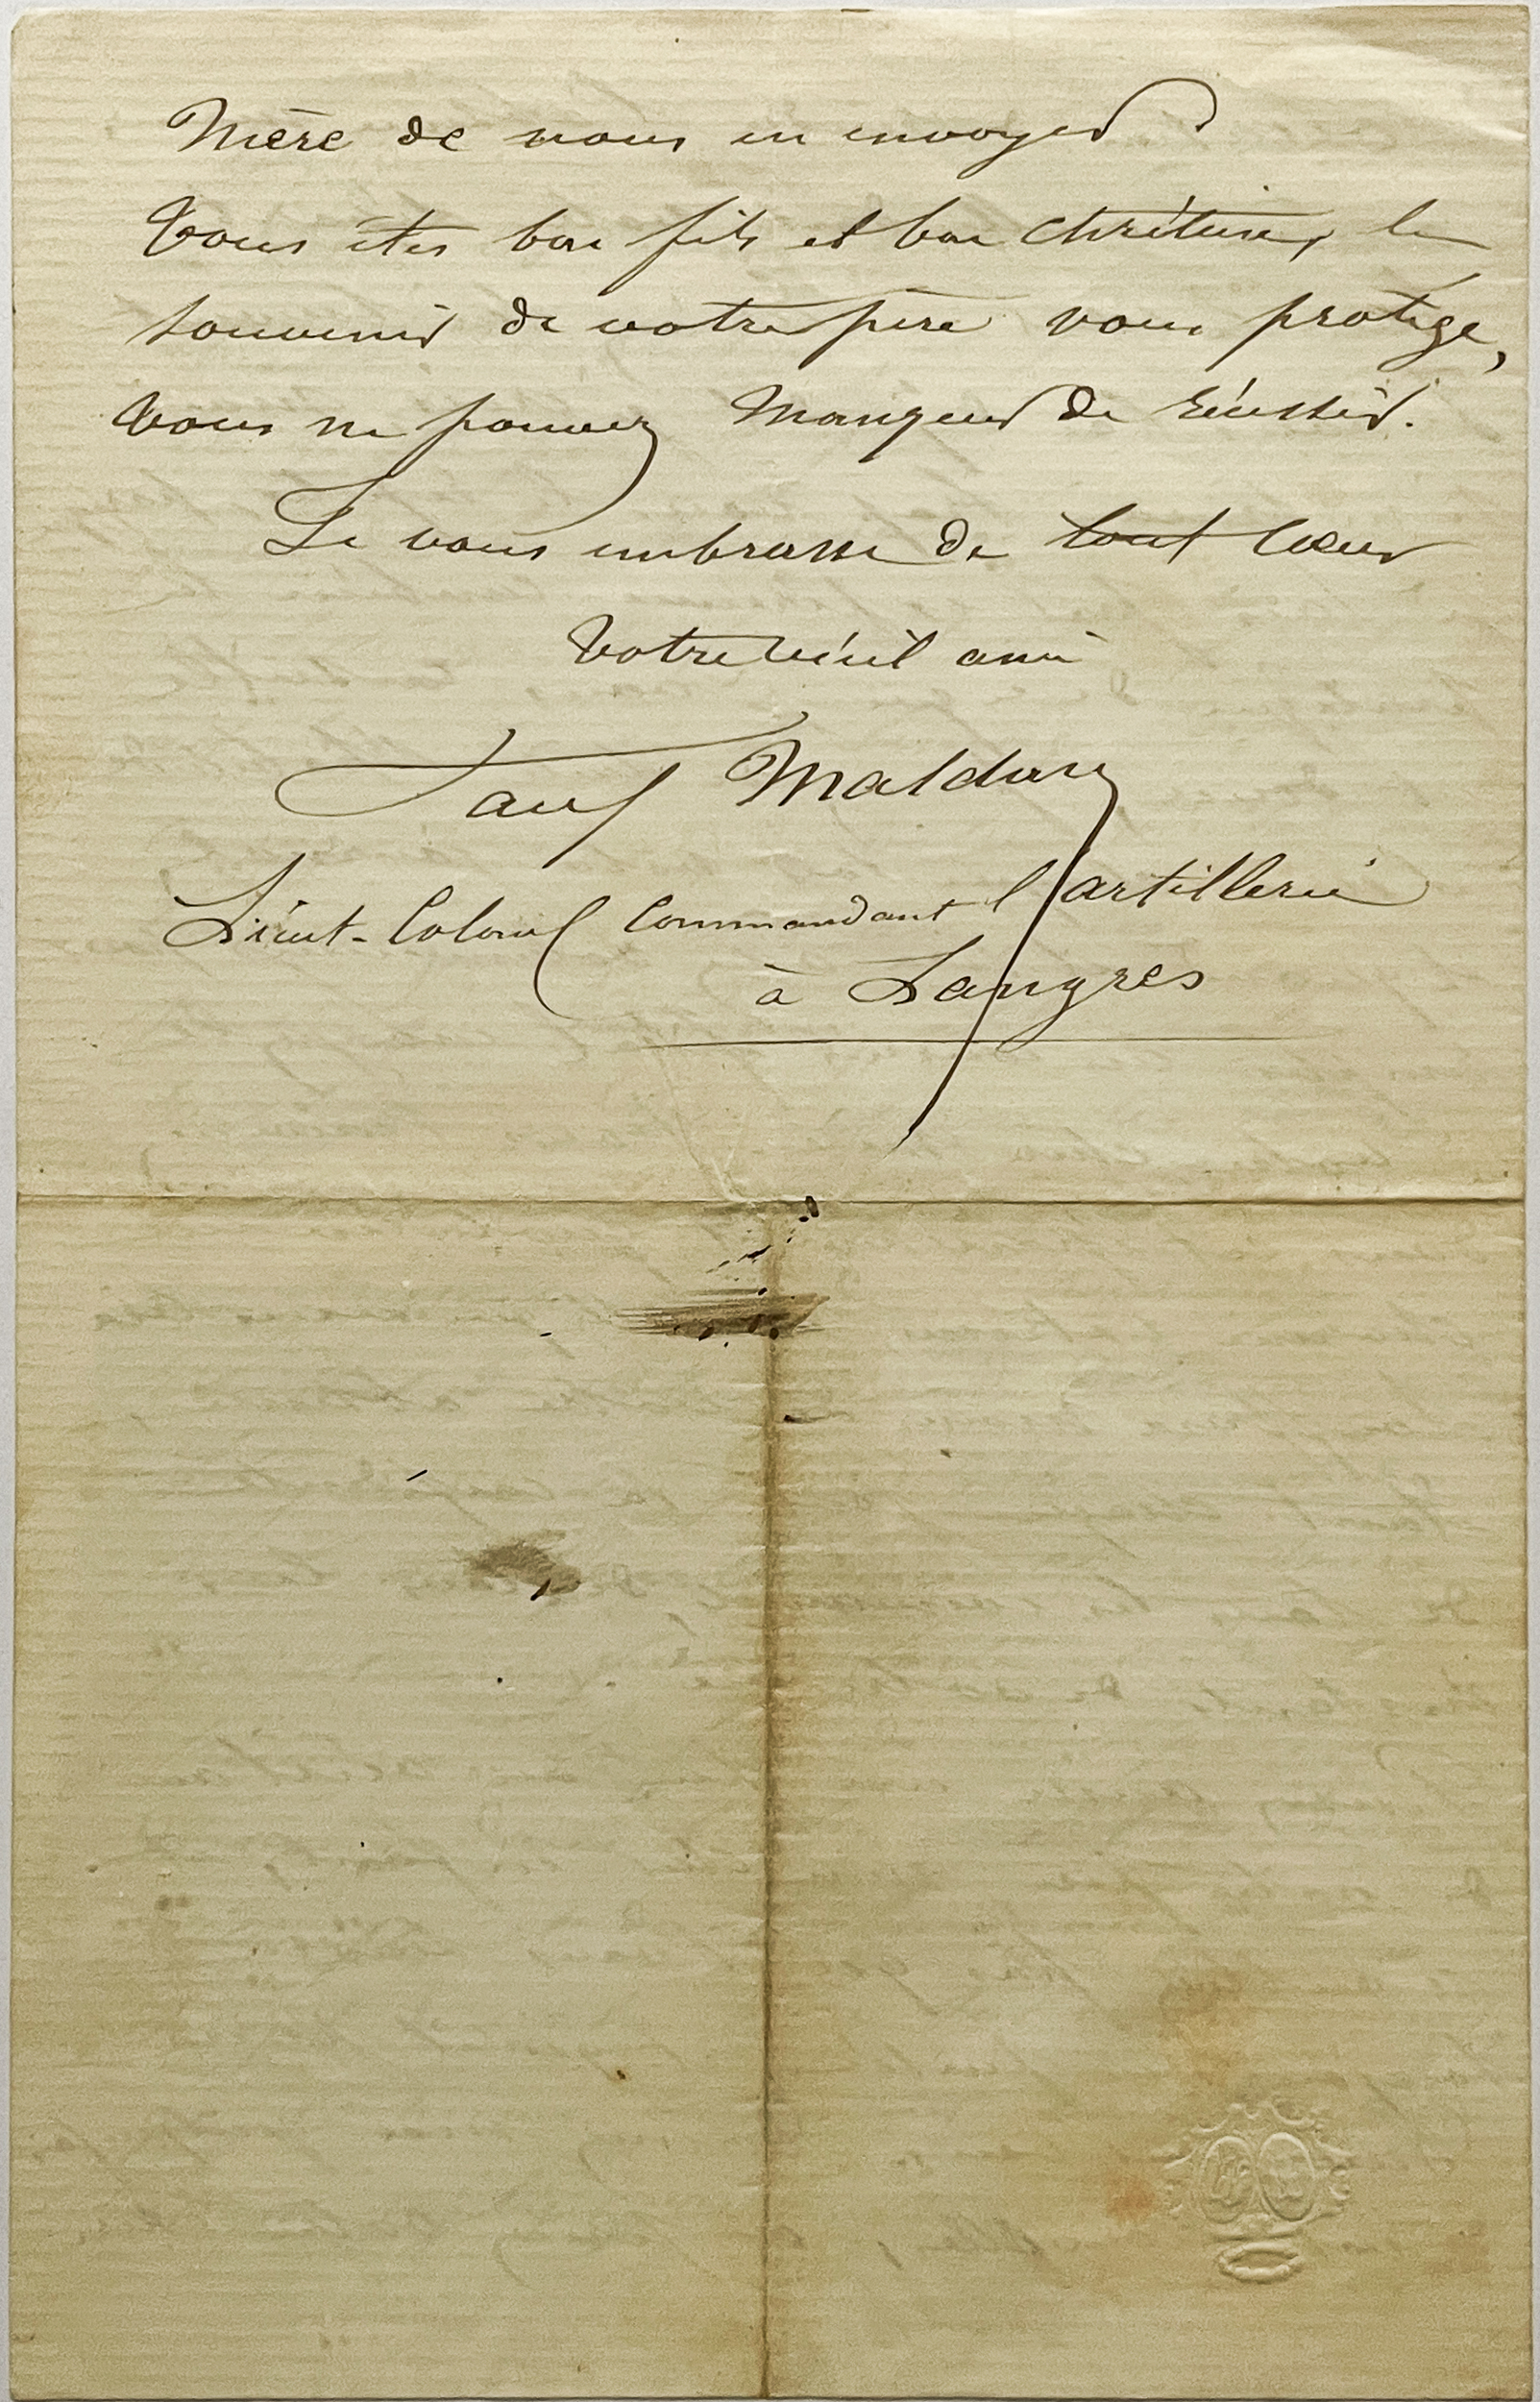 Mère de nous en envoyer ?
Vous êtes bon fils et bon chrétien, le
souvenir de votre père vous protège,
Vous ne pouvez manquer de réussir.
Je vous embrasse de tout cœur
Votre vieil ami
Paul Maldan
Lieut-Colonel Commandant l'artillerie
à Langres